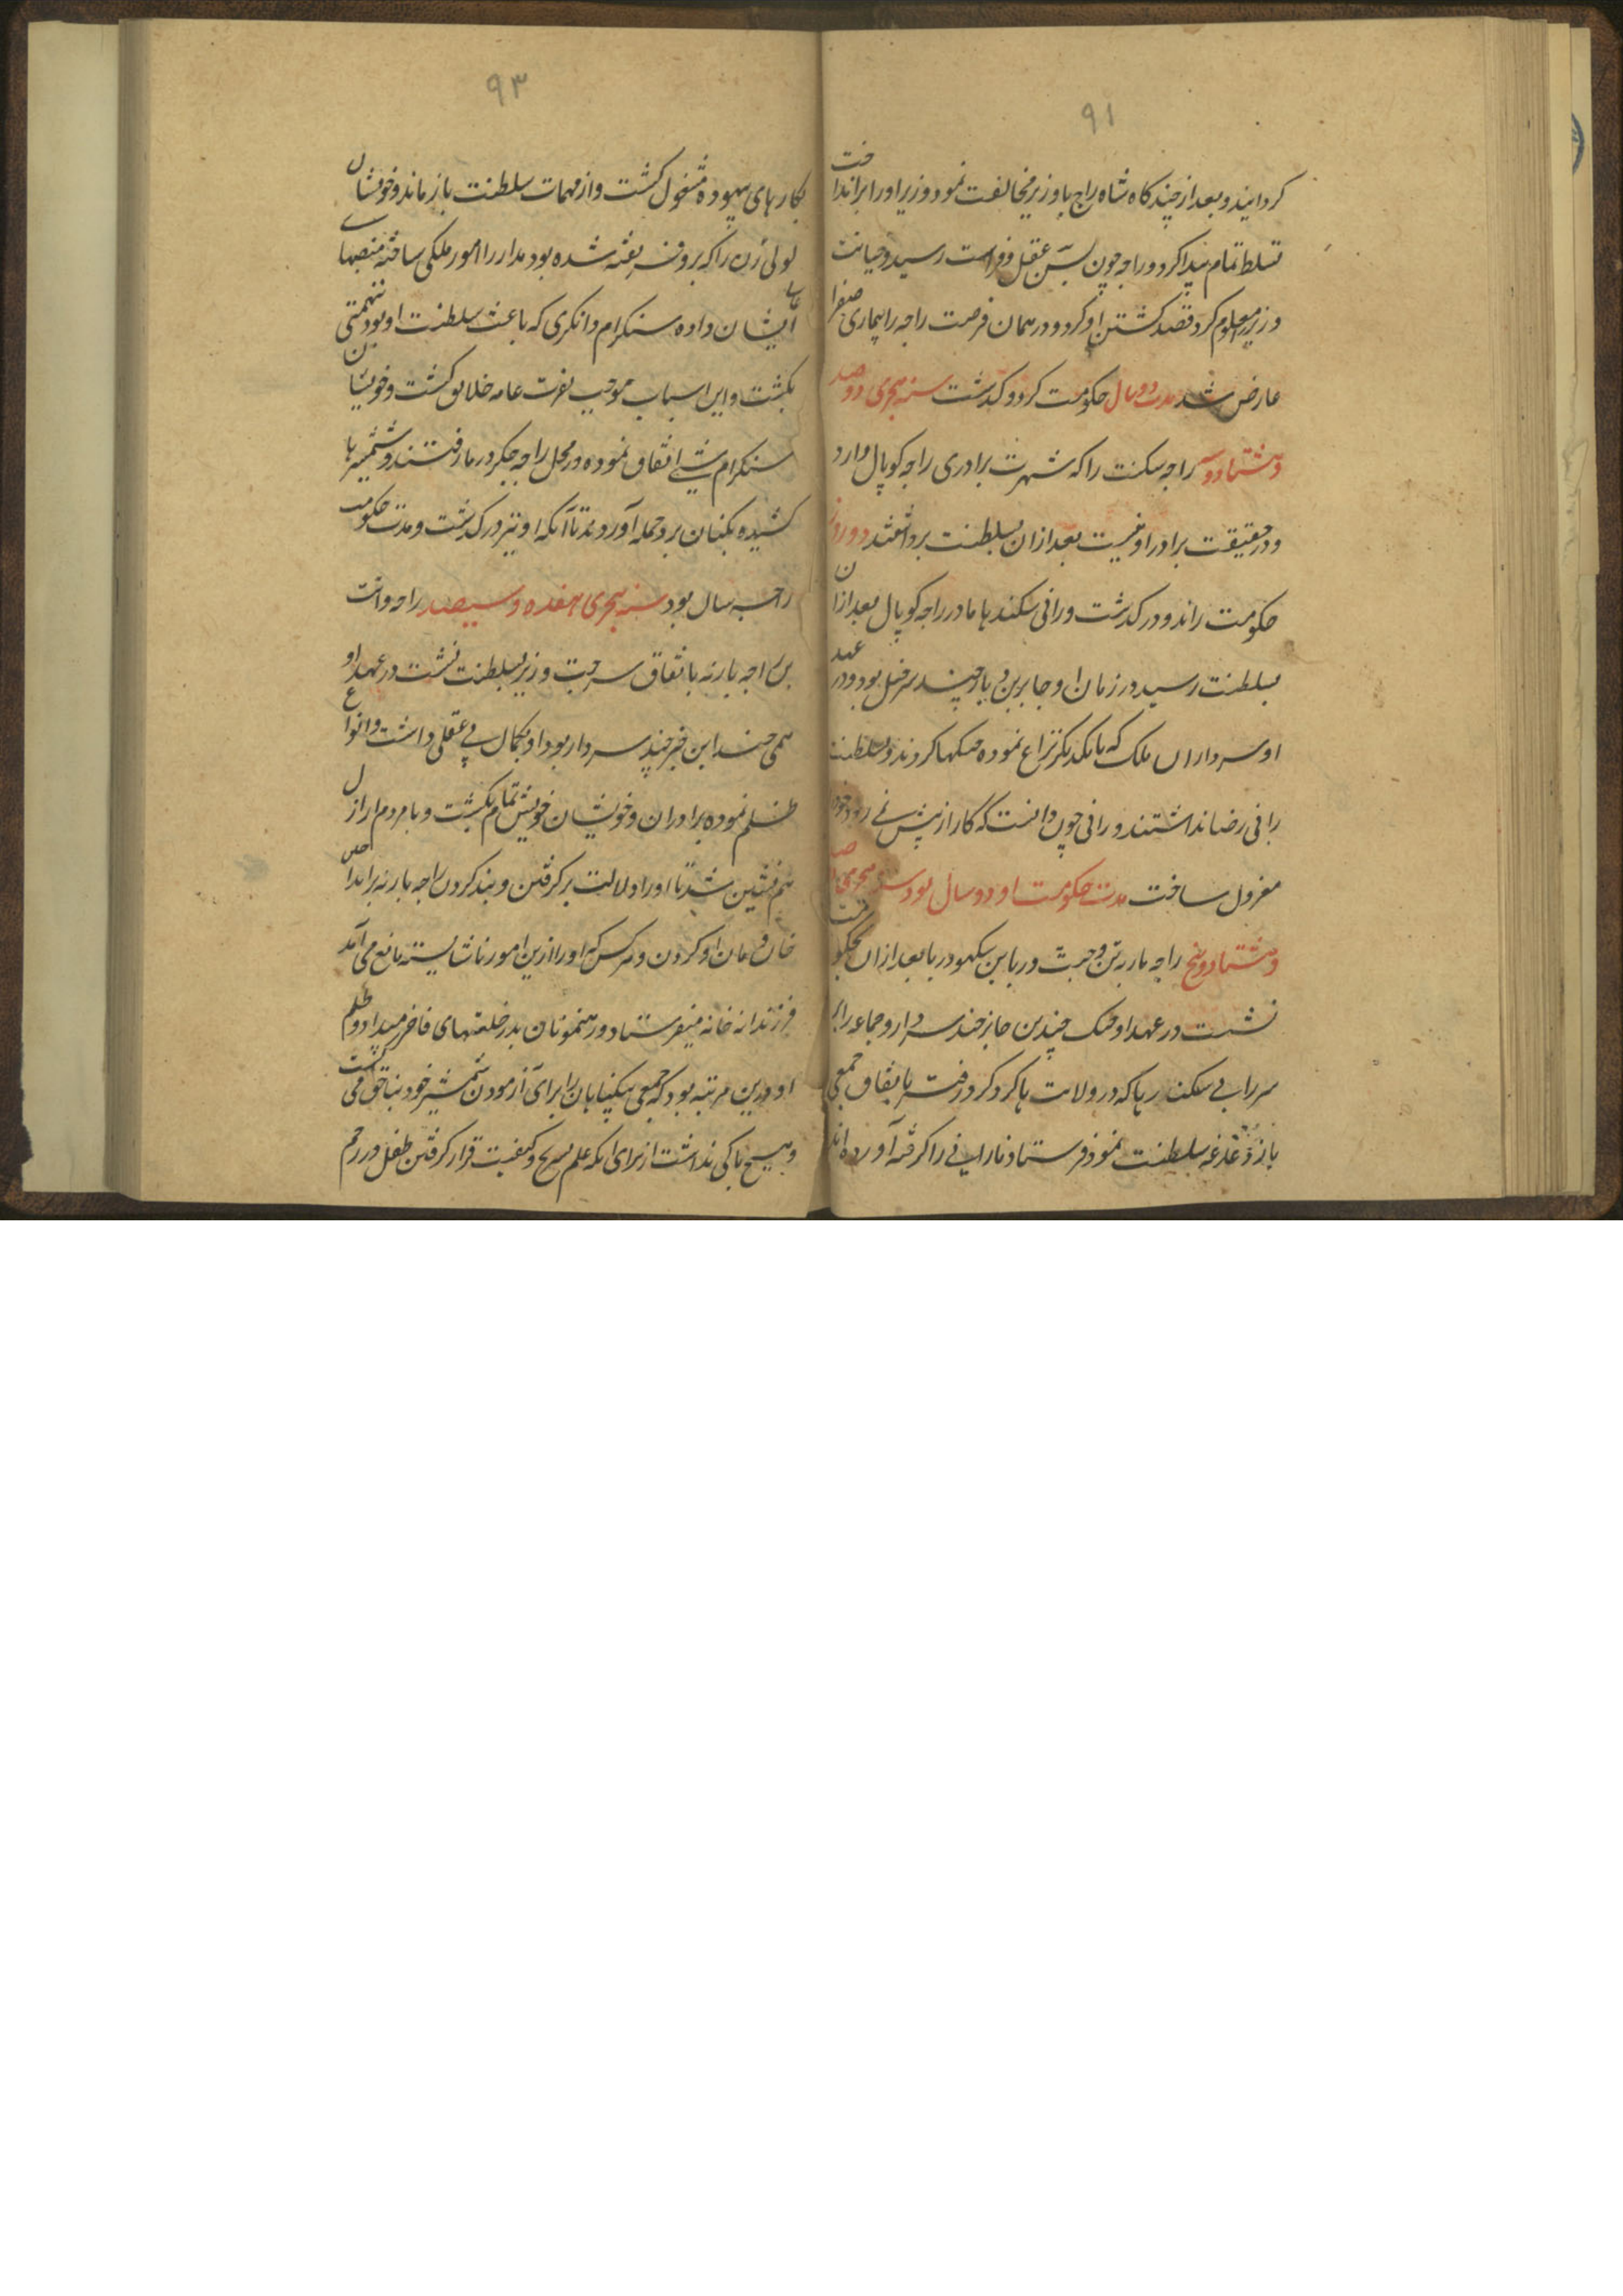 ۹۱
کردانید و بعد از چند کاه شاه راج با وزیر مخالفت نمود وزیر او را برانداخت
تسلط تمام پیدا کرد و راجه چون بسن عقل و فراست رسید و خیانت
وزیر معلوم کرد قصد کشتن او کرد و در همان فرصت راجه را بیماری صفرا
عارض شد مدت دو سال حکومت کرد و کذشت سنه هجری دوصد
و هشتاد و سه راجه سکنت را که شهرت برادری راجه کوپال دارد
و در حقیقت برادر او نیست بعد ازان بسلطنت برداشتند دو روز
حکومت راند و درکذشت و رانی سکندها مادر راجه کوپال بعد ازان
بسلطنت رسید در زمان او جابر بن و بازچند سرخیل بود و در عهد
او سرداران ملک که با یکدیکر نزاع نموده جنکها کردند و بسلطنت
رانی رضا نداشتند و رانی چون دانست که کار از پیش نمی رود خود را
معزول ساخت مدت حکومت او دو سال بود سنه هجری دوصد
و هشتاد و پنج راجه پارته بن وجبت در باین سکهودریا بعد ازان بحکومت
نشست در عهد او جنک چندین جابر چند سردار و جماعه را
سررابی سکند ریا که در ولایت پاکرو کردرفته با تفاق جمعی
باز دغدغه سلطنت نمود فرستاد تا رانی را کرفته آوردهاند
۹۳
بکارهای بیهوده مشغول کشت و از مهمات سلطنت باز ماند و خویشان
لولی زن را که برو فریفته شده بود مدار را امور ملکی ساخته منصبهای
عالی ایشان داده سنکرام دانکری که باعث سلطنت او بود بتهمتی
بکشت و این اسباب موجب نفرت عامه خلایق کشت و خویشان
سنکرام شبی اتفاق نموده در محل راجه جکرورما رفتند و شمشیرها
کشیده یکبنان برو حمله آوردند تا آنکه او نیز درکذشت و مدت حکومت
راجه سال بود سنه هجری هفده و سیصد راجه وانت
بن راجه پارته باتفاق سرجت وزیر بسلطنت نشست در عهد او
همی چند ابن خبر چند سردار بود او بکمال بی عقلی داشت و انواع
ظلم نموده برادران و خویشان خویش تمام بکشت و با مردم اراذل
هم نشین شد تا او را دلالت بر کرفتن و بند کردن راجه پارته براند
خان و مان او کردن و هر کس که او را ازین امور ناشایسته مانع می آمد
فرزندانه خانه میفرستاد و رهنمونان بد را خلعتهای فاخر میداد و ظلم
او درین مرتبه بود که جمعی بیکناهان را برای آزمودن شمشیر خود بناحق می کشت
و هیچ باکی نداشت از برای آنکه علم تشریح و کیفیت قرار کرفتن طفل در رحم